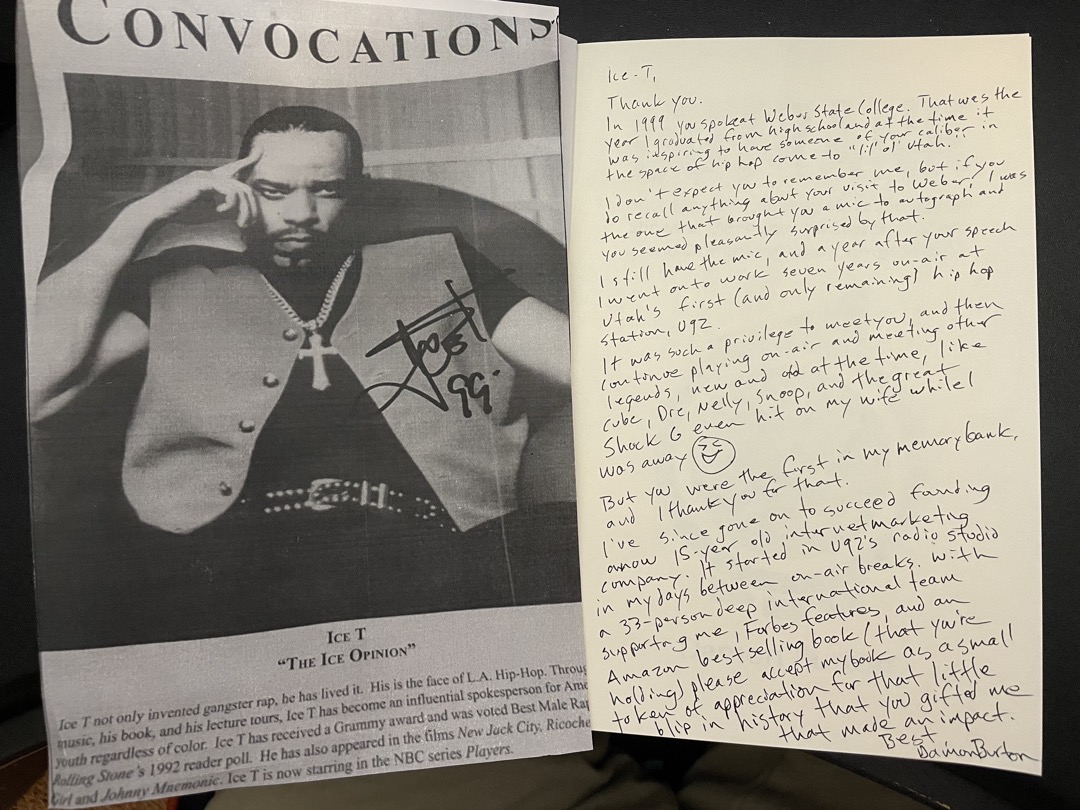 CONVOCATIONS
ICE T
"THE ICE OPINION"
Ice T not only invented gangster rap, he has lived it. His is the face of L.A. Hip-Hop. Throug
music, his book, and his lecture tours, Ice T has become an influential spokesperson for Ame
youth regardless of color. Ice T has received a Grammy award and was voted Best Male Rap
Rolling Stone's 1992 reader poll. He has also appeared in the films New Jack City, Ricoche
Girl and Johnny Mnemonic. Ice T is now starring in the NBC series Players.
99
Ice-T,
Thank you.
In 1999 you spoke at Weber State College. That was the
year I graduated from high school and at the time it
was inspiring to have someone of your caliber in
the space of hip hop come to "lil' ol' Utah."
I don't expect you to remember me, but if you
do recall anything about your visit to Weber, I was
the one that brought you a mic to autograph and
you seemed pleasantly surprised by that.
I still have the mic, and a year after your speech
I went on to work seven years on-air at
Utah's first (and only remaining) hip hop
station, U92.
It was such a privilege to meet you, and then
continue playing on-air and meeting other
legends, new and old at the time, like
Cube, Dre, Nelly, Snoop, and the great
Shock G even hit on my wife while I
was away
But you were the first in my memory bank,
and I thank you for that.
I've since gone on to succeed founding
a now 15-year old internet marketing
company. It started in U92's radio studio
in my days between on-air breaks. With
a 33-person deep international team
supporting me, Forbes features, and an
Amazon best selling book (that you're
holding) please accept my book as a small
token of appreciation for that little
blip in history that you gifted me
that made an impact.
Best
Damon Burton